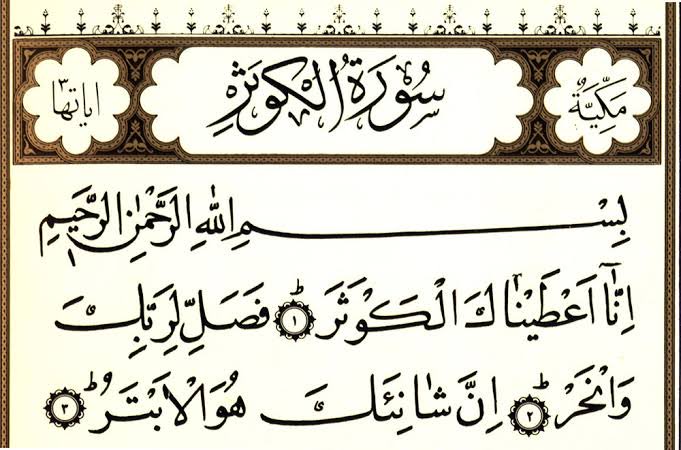 مَكِّيَّةٌ سُورَةُ الْكَوْثَرِ اٰيَاتُهَا ٣
بِسْمِ اللّٰهِ الرَّحْمٰنِ الرَّحٖيمِ
اِنَّٓا اَعْطَيْنَاكَ الْكَوْثَرَۜ ١ فَصَلِّ لِرَبِّكَ
وَانْحَرْۜ ٢ اِنَّ شَانِئَكَ هُوَ الْاَبْتَرُۜ ٣